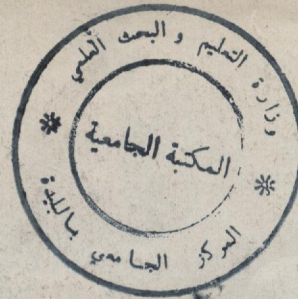 وزارة التعليم و البحث العلمي
المكتبة الجامعية
المركز الجامعي بالبليدة